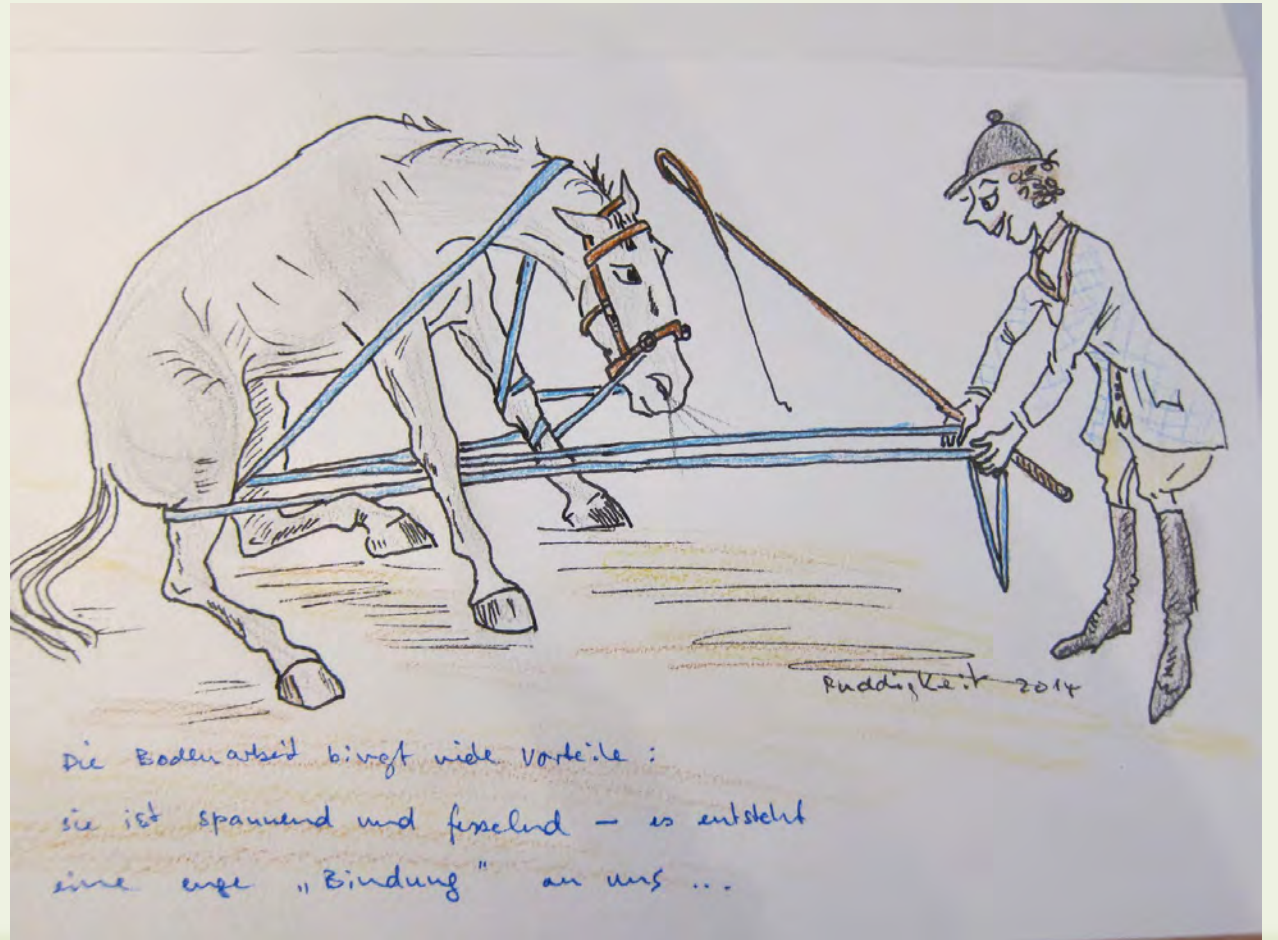 Ruddigkeit 2014
Die Bodenarbeit bingt viele Vorteile :
sie ist spannend und fesselnd – es entsteht
eine enge „Bindung" an uns ...